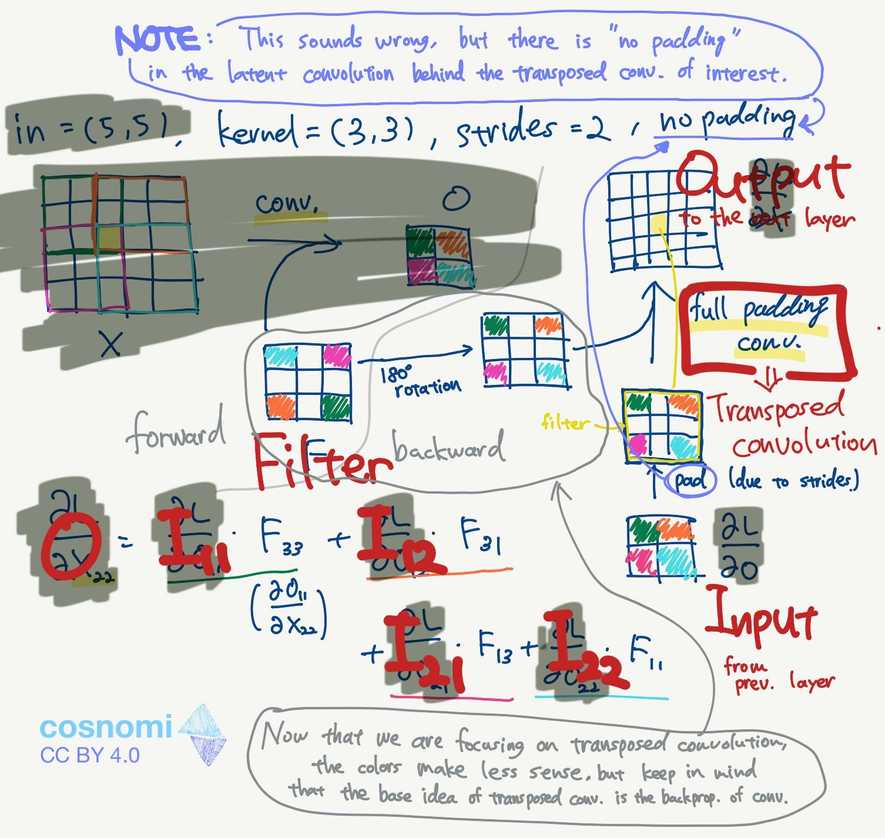 NOTE: This sounds wrong, but there is "no padding"
in the latent convolution behind the transposed conv. of interest.
in = (5,5), kernel = (3,3), strides = 2, no padding
conv.
O
X
Output
to the next layer
full padding
conv.
⇓
Transposed
convolution
180°
rotation
filter
forward
backward
Filter
pad (due to strides)
∂L/∂O
Input
from
prev. layer
O22 = I11 · F33 + I12 · F31
(∂O11/∂X22)
+ I21 · F13 + I22 · F11
Now that we are focusing on transposed convolution,
the colors make less sense, but keep in mind
that the base idea of transposed conv. is the backprop. of conv.
cosnomi
CC BY 4.0